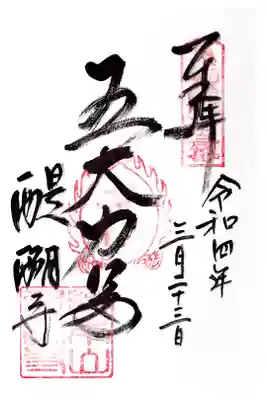 奉拝
令和四年
三月二十三日
五大力尊
醍醐寺